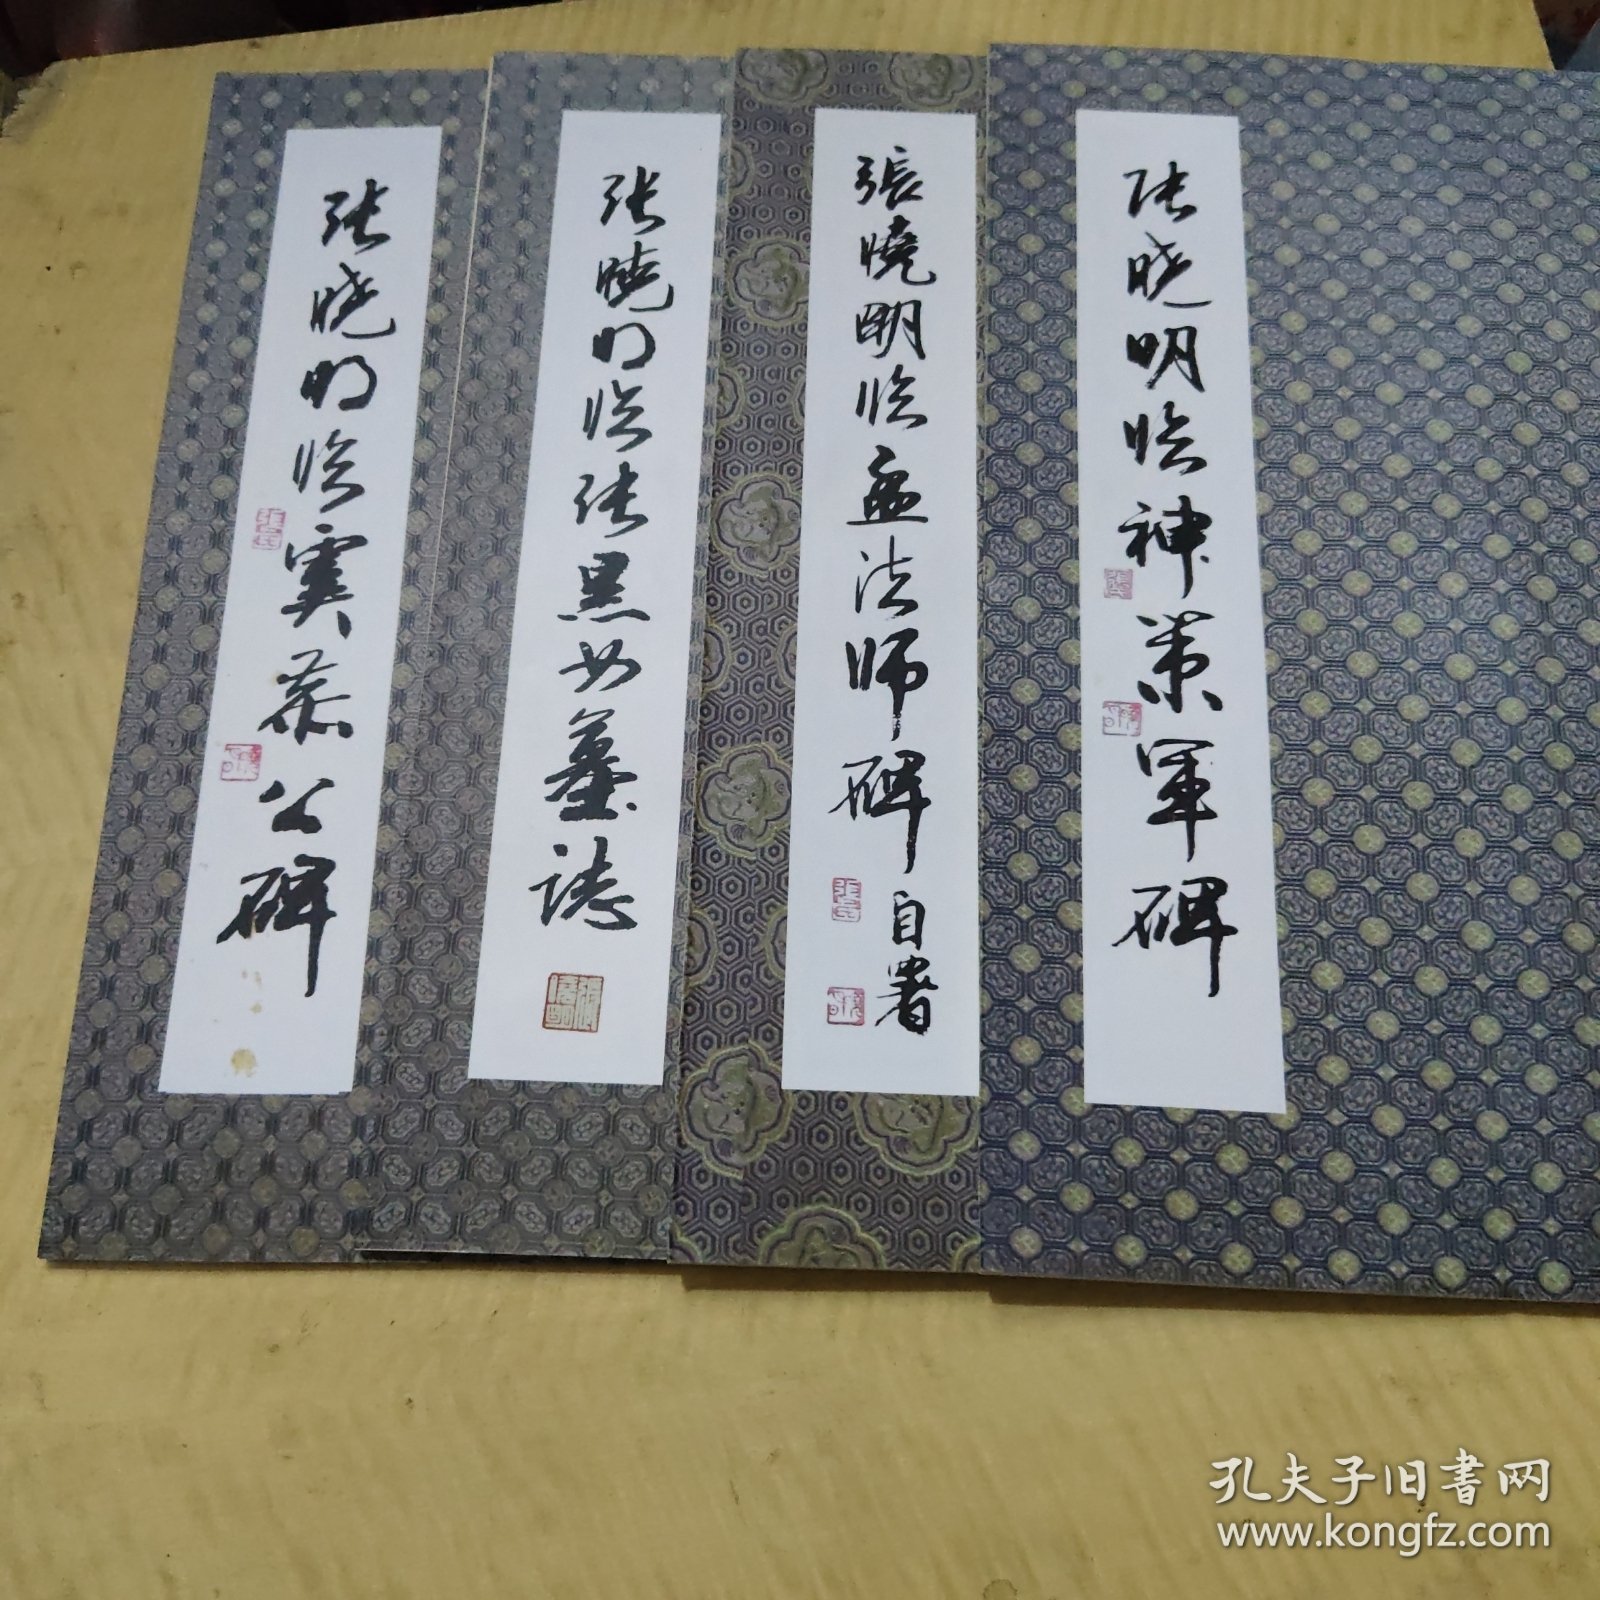 张晓明临虞恭公碑
张晓明临张黑女墓誌
張曉明临孟法师碑
自署
张晓明临神策军碑
孔夫子旧书网
www.kongfz.com